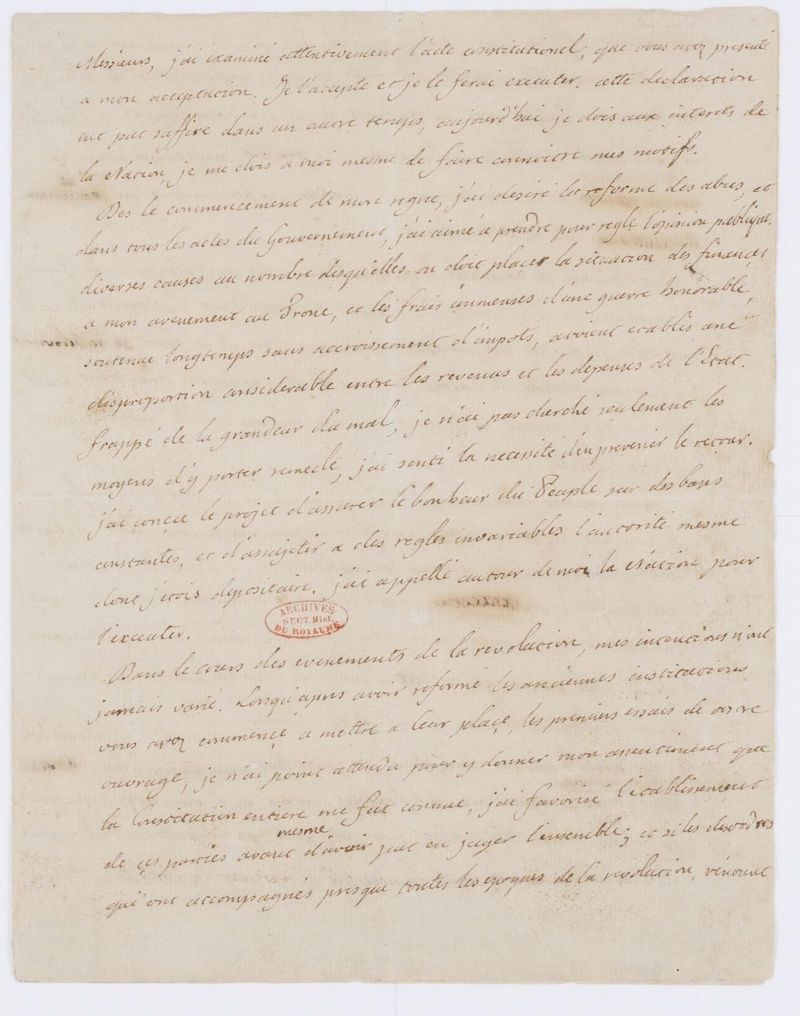 Messieurs, j'ai examiné attentivement l'acte constitutionel, que vous avez presenté
a mon acceptation. Je l'accepte et je le ferai executer. cette declaration
eut put suffire dans un autre temps, aujourd'hui je dois aux interets de
la Nation, je me dois a moi mesme de faire connoitre mes motifs.
Des le commencement de mon regne, j'ai desiré la reforme des abus, et
dans tous les actes du Gouvernement, j'ai aimé a prendre pour regle l'opinion publique.
diverses causes au nombre desquelles on doit placer la situation des finances
a mon avenement au Trone, et les frais immenses d'une guerre honorable,
soutenue longtemps sans accroissement d'impots, avoient etablis une
disproportion considerable entre les revenus et les depenses de l'Etat.
frappé de la grandeur du mal, je n'ai pas cherché seulement les
moyens d'y porter remede, j'ai senti la necessité d'en prevenir le retour.
j'ai conçu le projet d'assurer le bonheur du Peuple sur des bases
constantes, et d'assujetir a des regles invariables l'autorité mesme
dont j'etois depositaire. j'ai appellé autour de moi la Nation pour
l'executer.
ARCHIVES
SECT. Hist.
DU ROYAUME
Dans le cours des evenements de la revolution, mes intentions n'ont
jamais varié. Lorsqu'apres avoir reformé les anciennes institutions
vous avez commencé a mettre a leur place, les premiers essais de votre
ouvrage, je n'ai point attendu pour y donner mon assentiment que
la Constitution entiere me fut connue, j'ai favorisé l'etablissement
de ces parties avant mesme d'avoir put en juger l'ensemble; et si les desordres
qui ont accompagnés presque toutes les epoques de la revolution, venoient